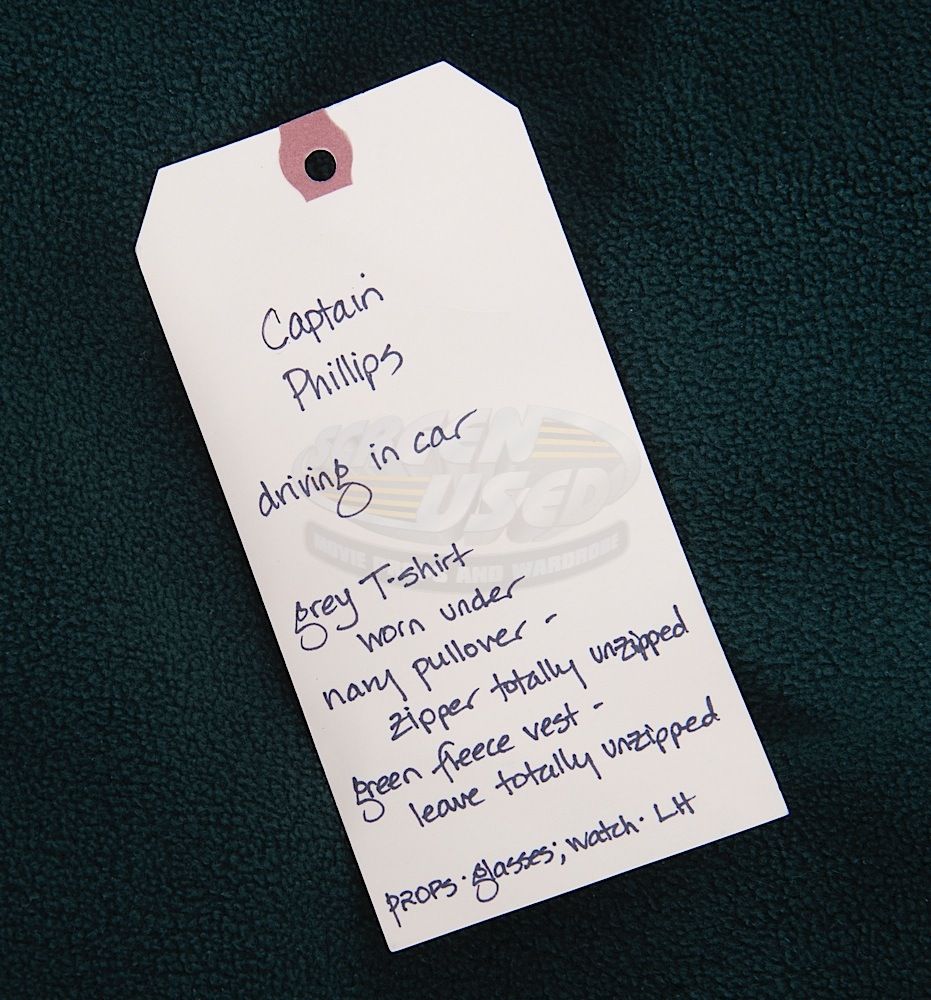 Captain
Phillips
driving in car
grey T-shirt
worn under
navy pullover -
zipper totally unzipped
green fleece vest -
leave totally unzipped
PROPS · glasses; watch · LH
SCREEN
USED
MOVIE PROPS AND WARDROBE